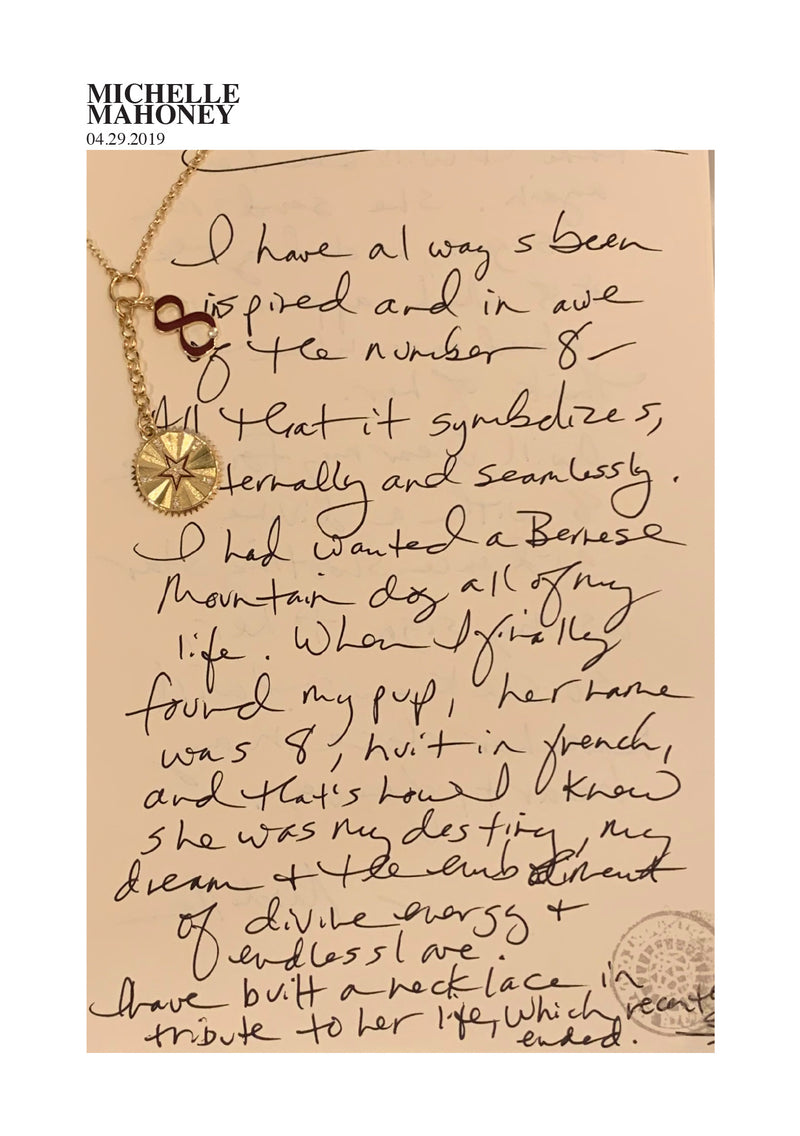 MICHELLE
MAHONEY
04.29.2019
I have always been
inspired and in awe
of the number 8 –
All that it symbolizes,
ternally and seamlessly.
I had wanted a Bernese
Mountain dog all of my
life. When I finally
found my pup, her name
was 8, huit in french,
and that's how I knew
she was my destiny, my
dream + the embodiment
of divine energy +
endless love.
I have built a necklace in
tribute to her life, which recently
ended.